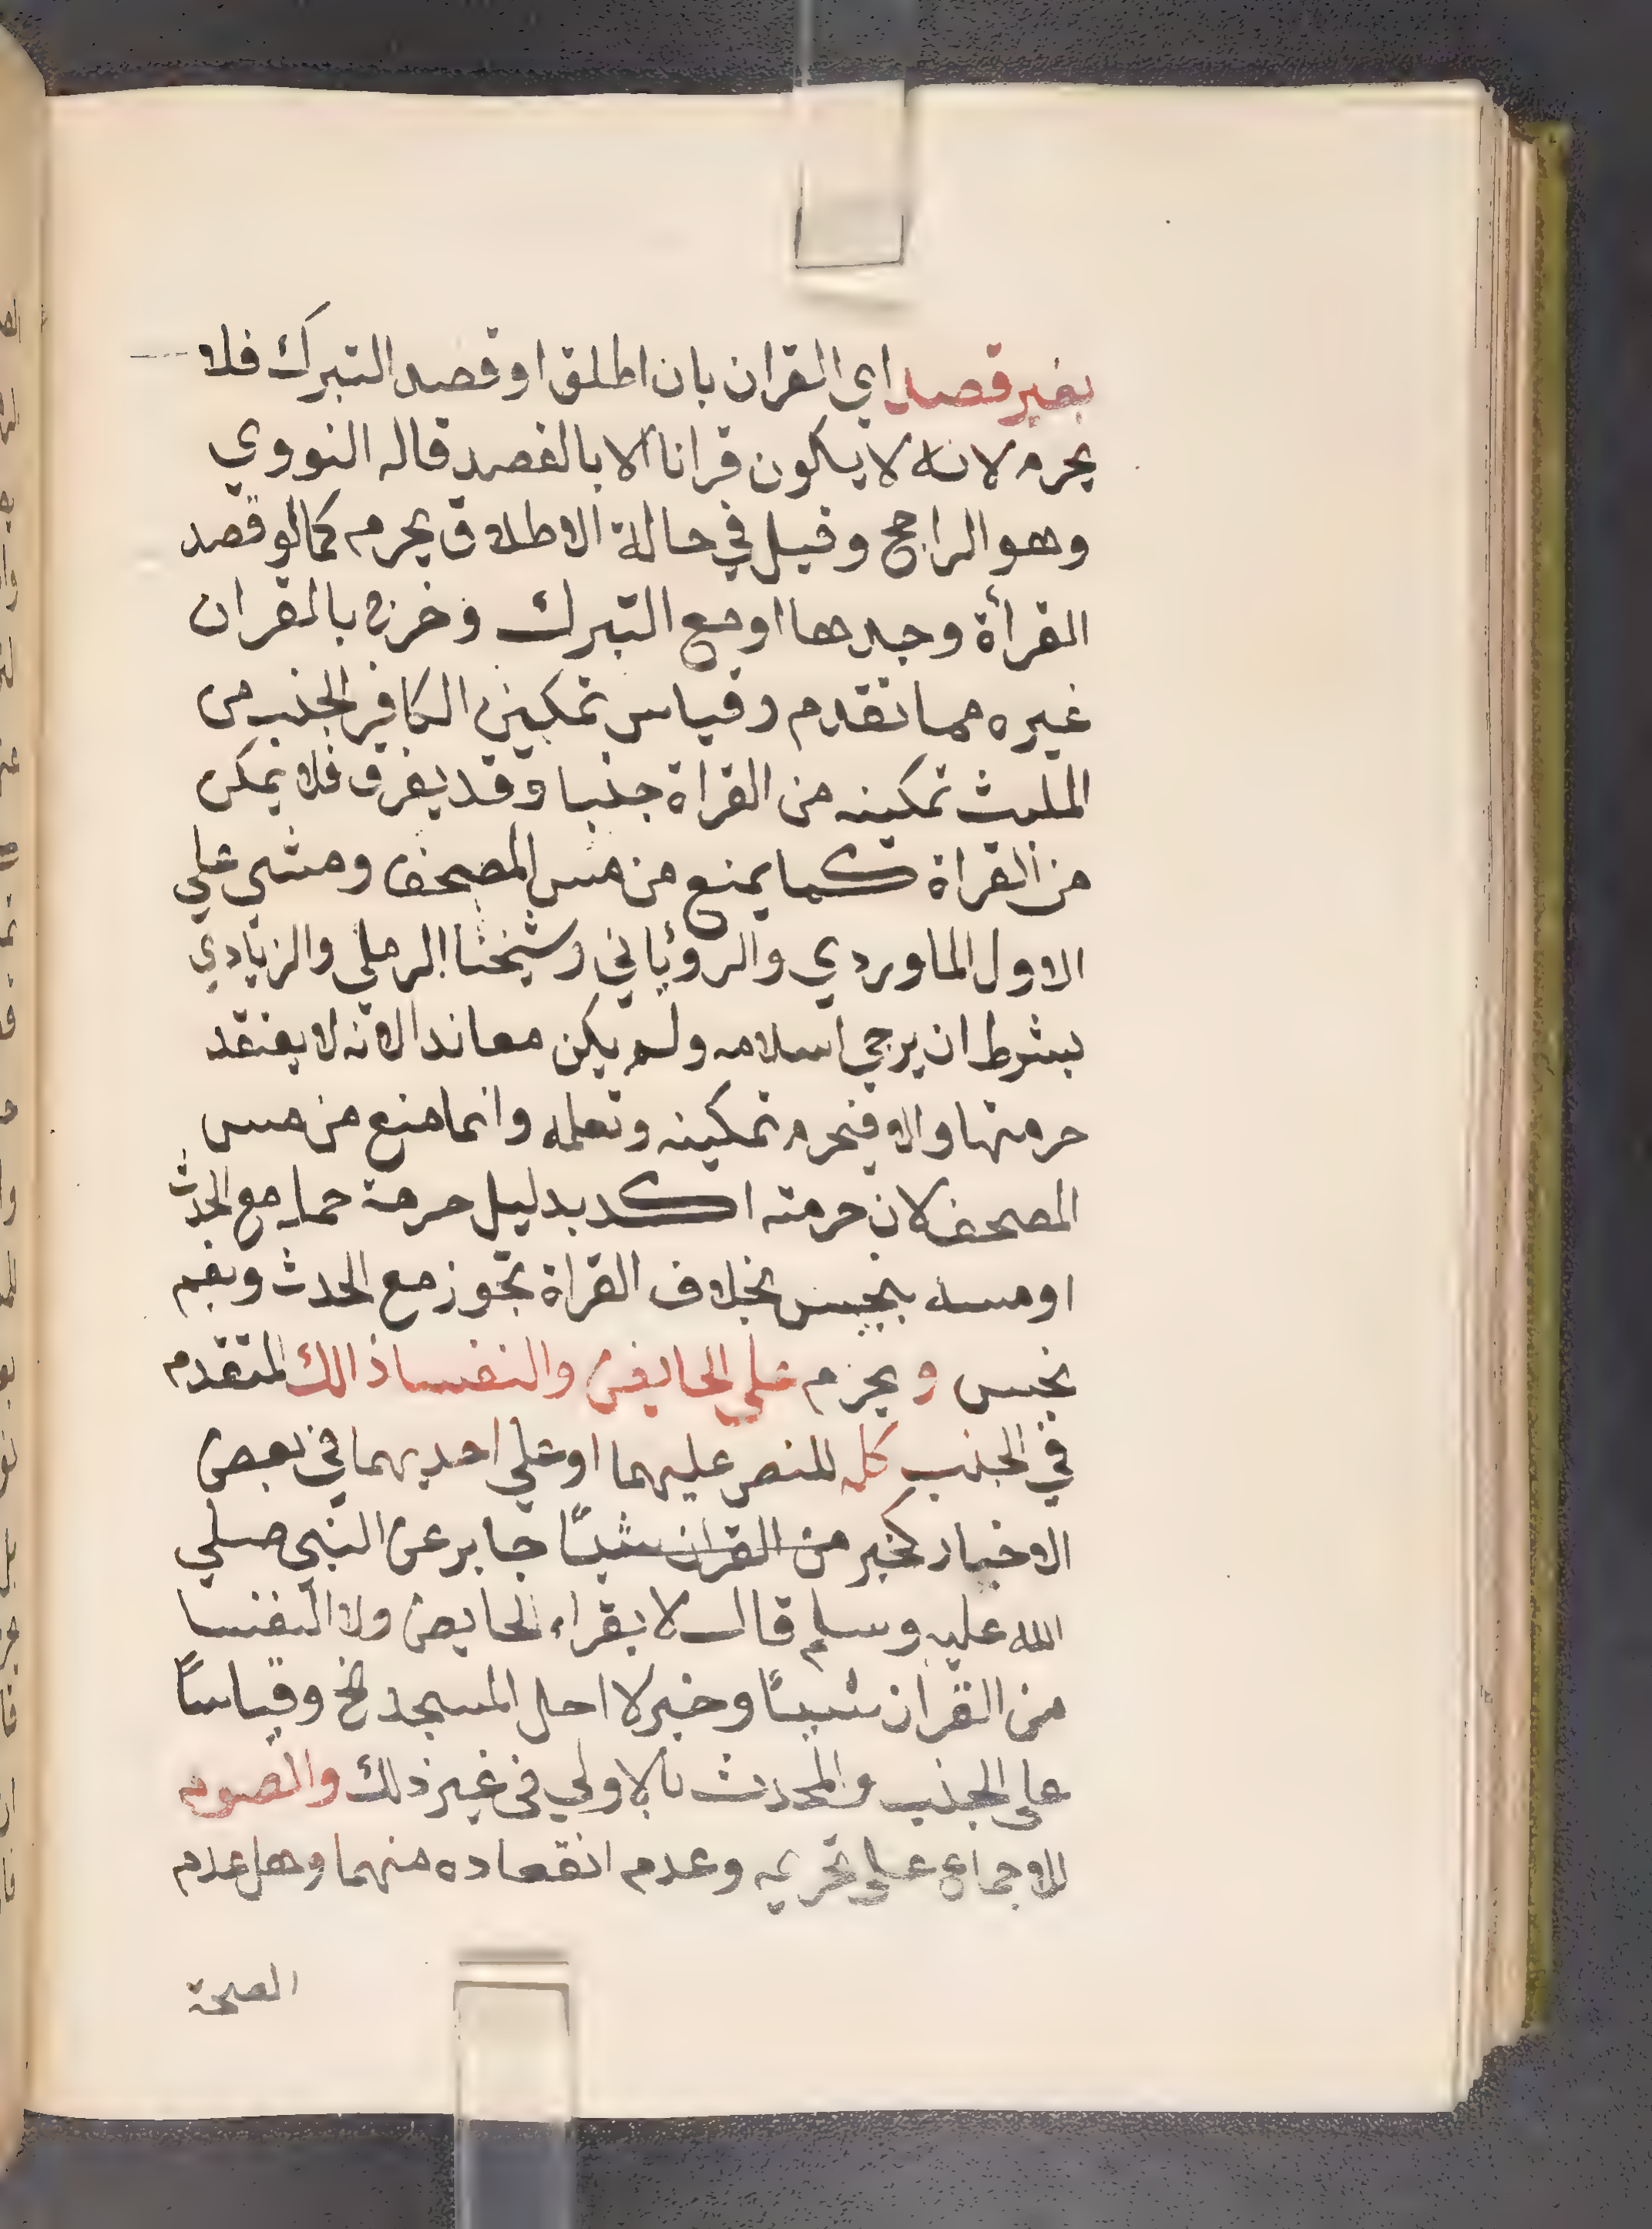 بغير قصد اي القران بان اطلق او قصد التبرك فلا
يحرم لانه لا يكون قرانا الا بالقصد قاله النووي
وهو الراجح وقيل في حالة الاطلاق يحرم كما لو قصد
القرأة وحدها او مع التبرك وخرج بالقران
غيره مما تقدم وقياس تمكين الكافر الجنب من
الملبث تمكينه من القراة جنبا وقد يفرق فلا يمكن
من القراة كما يمنع من مس المصحف ومشي علي
الاول الماوردي والروياني وشيخنا الرملي والزيادي
بشرط ان يرجي اسلامه ولم يكن معاندا لانه لا يعتقد
حرمتها والا فيحرم تمكينه وتعلمه وانما منع من مس
المصحف لان حرمته اكد بدليل حرمة حمله مع الحدث
او مسه بنجس بخلاف القراة تجوز مع الحدث وبفم
نجس ويحرم علي الحايض والنفسا ذالك المتقدم
في الجنب كله للنص عليهما او علي احديهما في بعض
الاخبار كخبر من القران شيئا جابر عن النبي صلي
الله عليه وسلم قال لا يقراء الحايض ولا النفسا
من القران شيئا وخبر لا احل المسجد الخ وقياسا
على الجنب والمحدث بالاولي في غير ذلك والصوم
للاجماع على تحريمه وعدم انعقاده منهما وهل عدم
الصحة